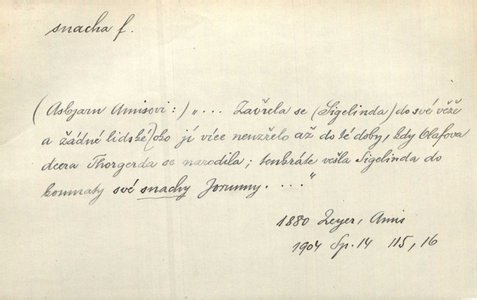 snacha f.
(Asbjarn Amisovi:) „... Zavřela se (Sigelinda) do své věže
a žádné lidské oko jí více neuzřelo až do té doby, kdy Olafova
dcera Thorgerda se narodila; tenkráte vešla Sigelinda do
komnaty své snachy Jorunny. ...."
1880 Zeyer, Amis
1904 Sp. 14 115, 16